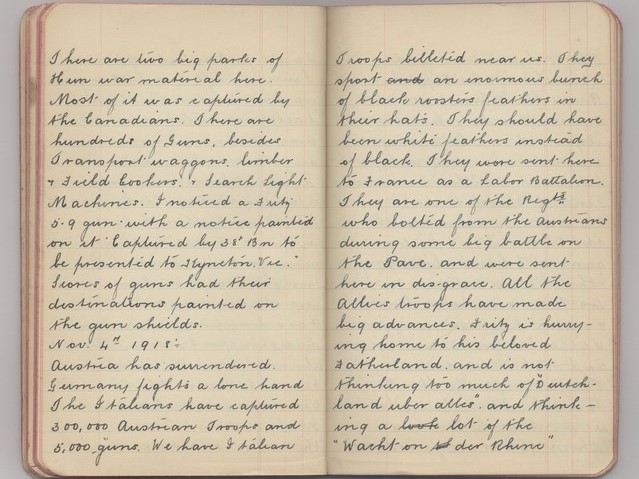 There are two big parks of
Hun war material here.
Most of it was captured by
the Canadians. There are
hundreds of Guns, besides
Transport waggons, limber
+ Field Cookers, + Search Light
Machines. I noticed a Fritz
5.9 gun with a notice painted
on it "Captured by 38th Bn to
be presented to Kyneton, Vic."
Scores of guns had their
destinations painted on
the gun shields.
Nov. 4th 1918:
Austria has surrendered.
Germany fights a lone hand
The Italians have captured
300,000 Austrian Troops and
5,000 guns. We have Italian
Troops billeted near us. They
sport and an enormous bunch
of black roosters feathers in
their hats. They should have
been white feathers instead
of black. They were sent here
to France as a Labor Battalion.
They are one of the Regts
who bolted from the Austrians
during some big battle on
the Pave, and were sent
here in disgrace. All the
Allies troops have made
big advances. Fritz is hurry-
ing home to his beloved
Fatherland, and is not
thinking too much of "Deutch-
land uber alles", and think-
ing a look lot of the
"Wacht on der Rhine"